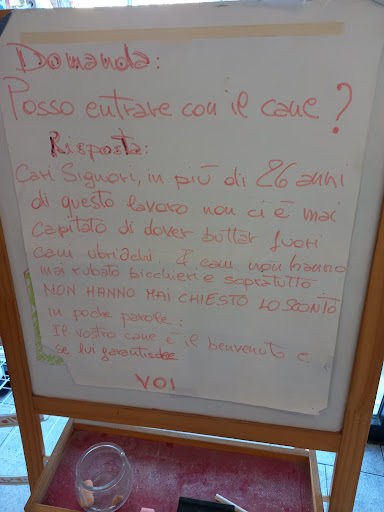 Domanda:
Posso entrare con il cane?
Risposta:
Cari Signori, in più di 26 anni
di questo lavoro non ci è mai
capitato di dover buttar fuori
cani ubriachi. I cani non hanno
mai rubato bicchieri e sopratutto
NON HANNO MAI CHIESTO LO SCONTO
in poche parole:
Il vostro cane è il benvenuto e,
se lui garantisce
VOI